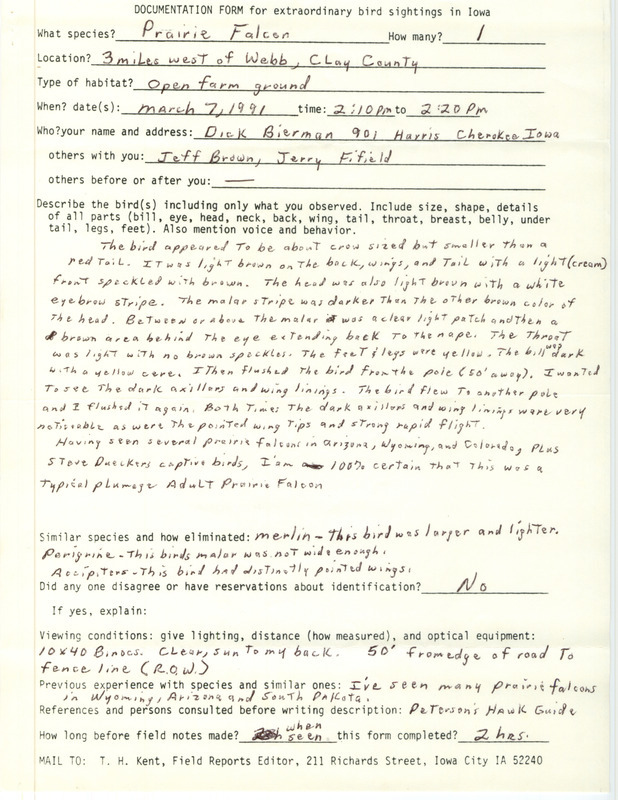 DOCUMENTATION FORM for extraordinary bird sightings in Iowa
What species? Prairie Falcon How many? 1
Location? 3 miles west of Webb, Clay County
Type of habitat? Open farm ground
When? date(s): March 7, 1991 time: 2:10 pm to 2:20 Pm
Who?your name and address: Dick Bierman 901 Harris Cherokee Iowa
others with you: Jeff Brown, Jerry Fifield
others before or after you: —
Describe the bird(s) including only what you observed. Include size, shape, details
of all parts (bill, eye, head, neck, back, wing, tail, throat, breast, belly, under
tail, legs, feet). Also mention voice and behavior.
The bird appeared to be about crow sized but smaller than a
red tail. It was light brown on the back, wings, and tail with a light (cream)
front speckled with brown. The head was also light brown with a white
eyebrow stripe. The malar stripe was darker than the other brown color of
the head. Between or above the malar was a clear light patch and then a
brown area behind the eye extending back to the nape. The throat
was light with no brown speckles. The feet & legs were yellow. The bill was dark
with a yellow cere. I then flushed the bird from the pole (50' away). I wanted
to see the dark axillars and wing linings. The bird flew to another pole
and I flushed it again. Both times the dark axillars and wing linings were very
noticeable as were the pointed wing tips and strong rapid flight.
Having seen several prairie falcons in Arizona, Wyoming, and Colorado, plus
Steve Dueckers captive birds, I'am 100% certain that this was a
typical plumage Adult Prairie Falcon
Similar species and how eliminated: merlin - this bird was larger and lighter.
Perigrine - This birds malar was not wide enough.
Accipiters - This bird had distinctly pointed wings.
Did any one disagree or have reservations about identification? No
If yes, explain:
Viewing conditions: give lighting, distance (how measured), and optical equipment:
10x40 Binocs. Clear, sun to my back. 50' from edge of road to
fence line (R.O.W.)
Previous experience with species and similar ones: I've seen many prairie falcons
in Wyoming, Arizona and South Dakota.
References and persons consulted before writing description: Peterson's Hawk Guide
How long before field notes made? when seen this form completed? 2 hrs.
MAIL TO: T. H. Kent, Field Reports Editor, 211 Richards Street, Iowa City IA 52240